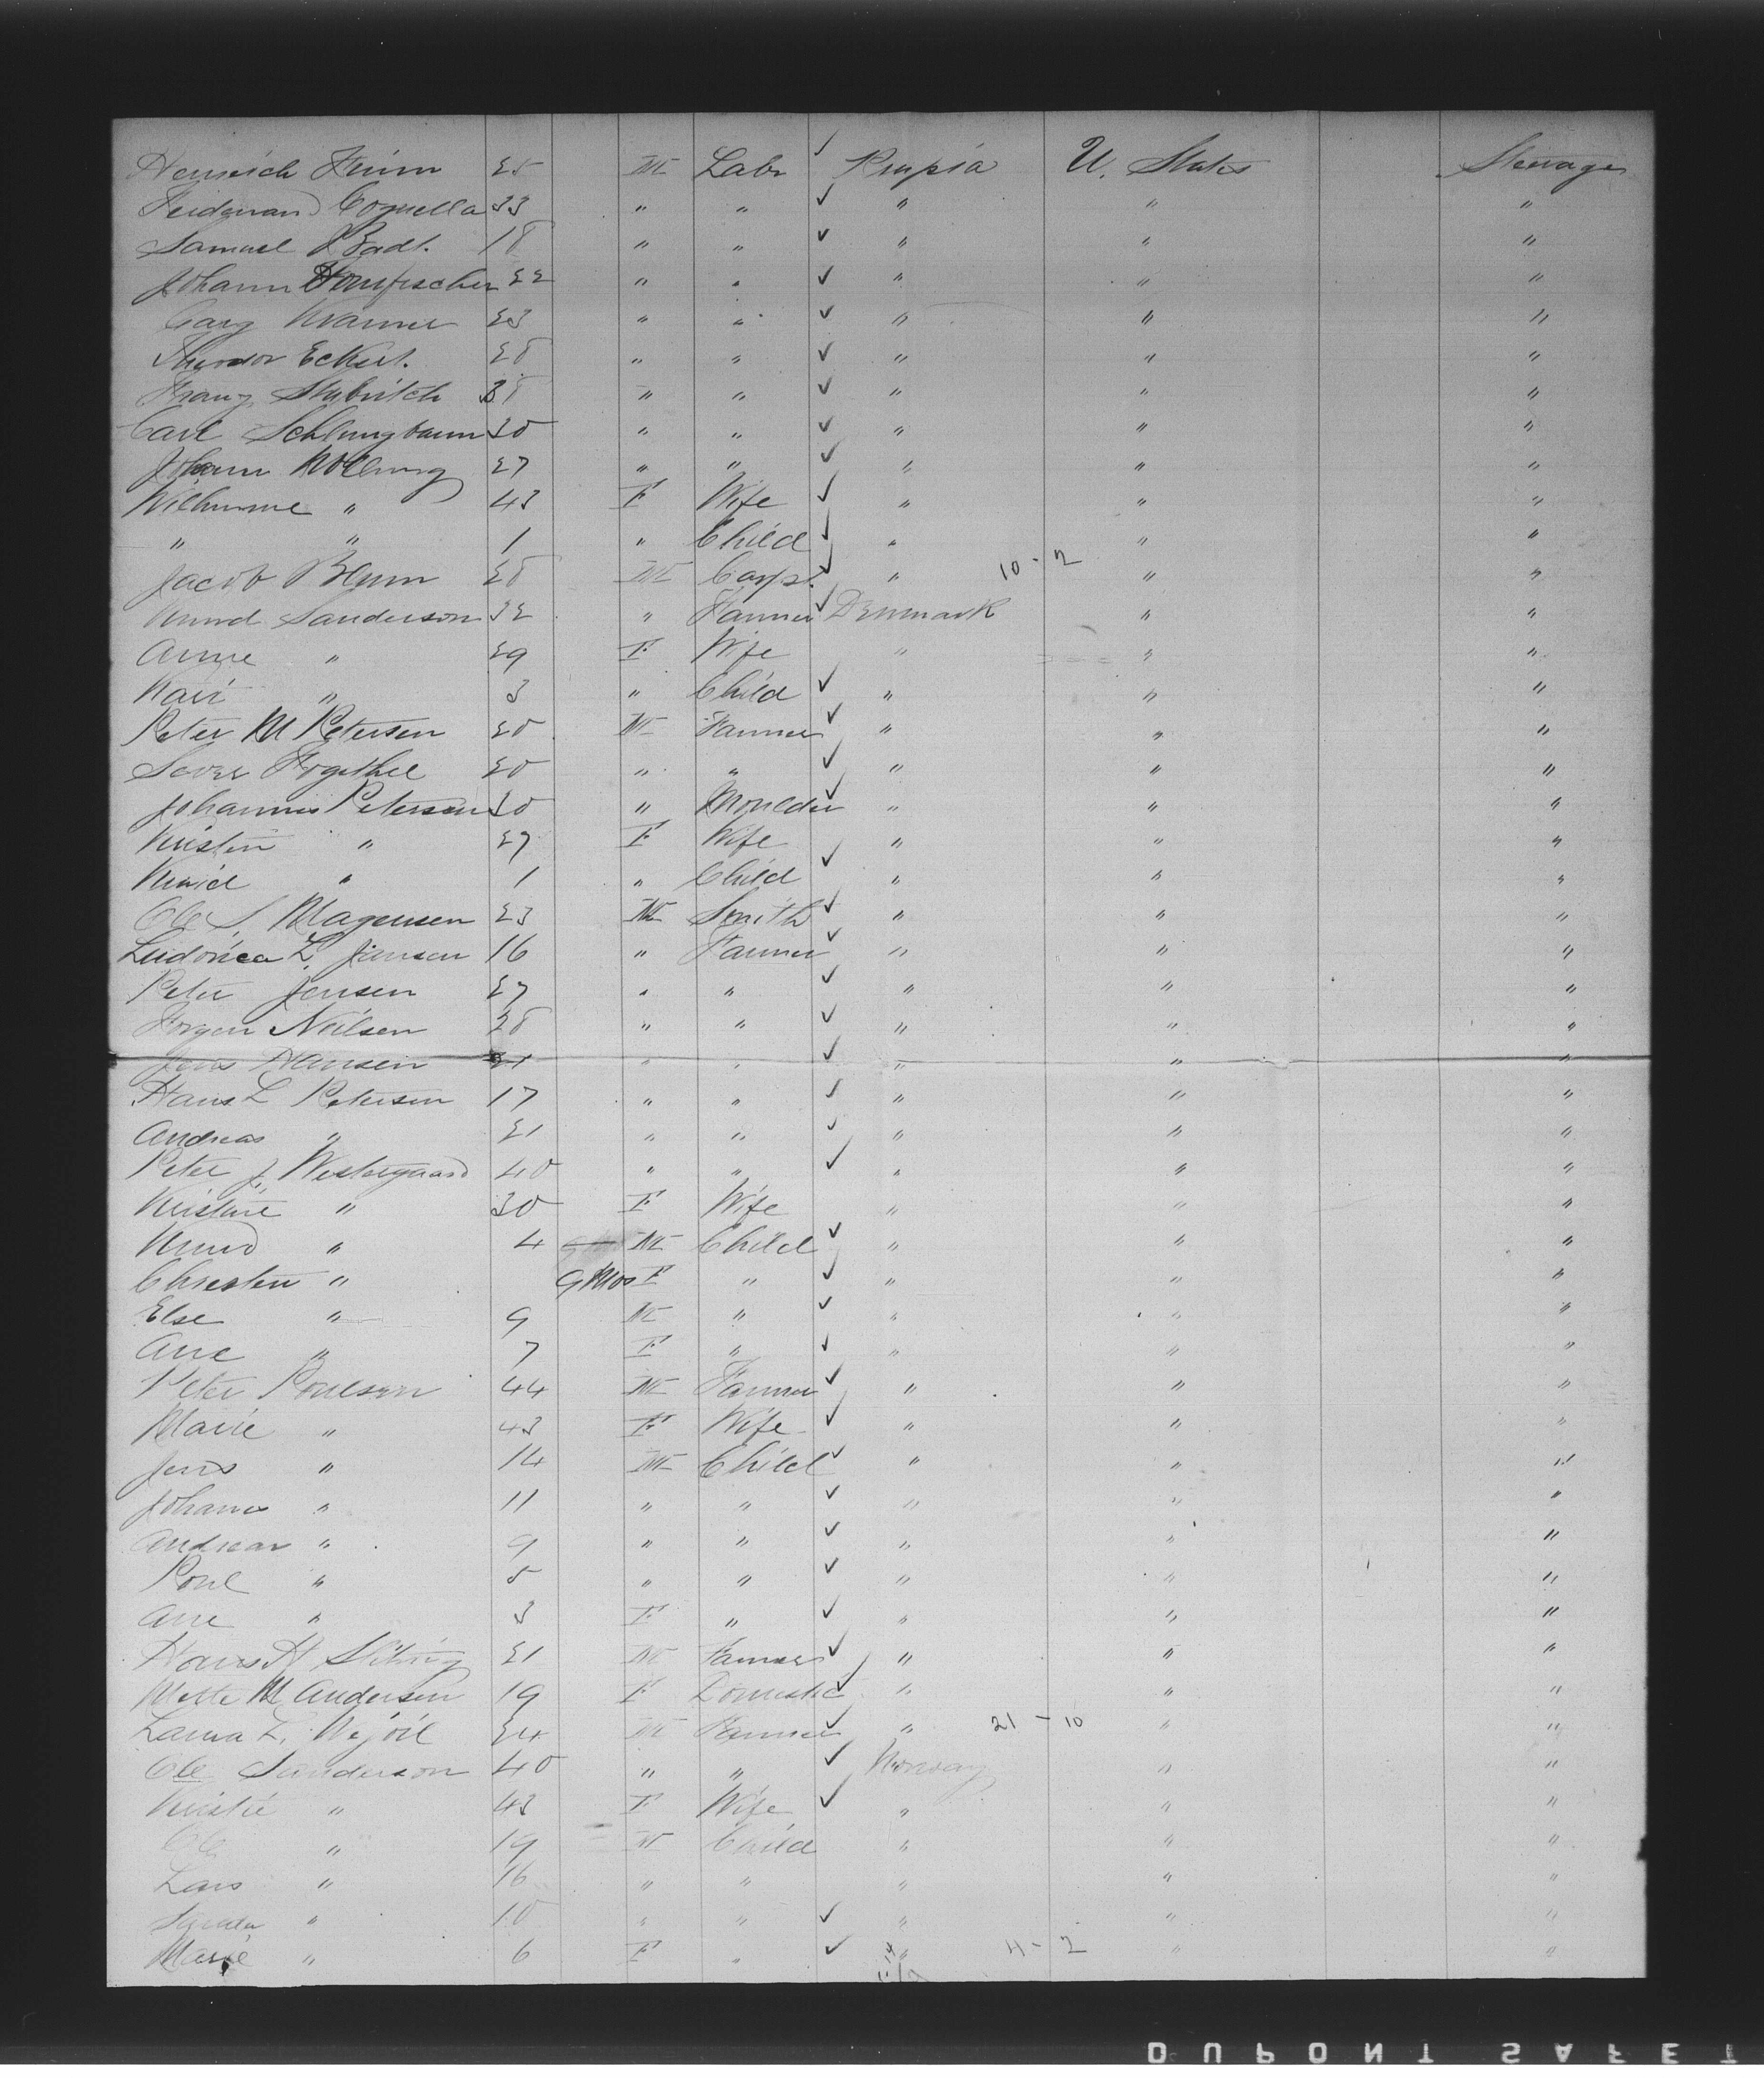 Heinrich 25 M Labr Prussia U. States Steerage
Ferdinand 33 " " " " "
Samuel Badt. 18 " " " " "
Johann 22 " " " " "
23 " " " " "
Theodor Eckert. 28 " " " " "
Franz 38 " " " " "
Carl Schlungbaum 30 " " " " "
Johann 27 " " " " "
" 43 F Wife " " "
" " 1 " Child " " "
Jacob 28 M Carpt. " 10-2 " "
Knud Sanderson 32 " Farmer Denmark " "
Anne " 29 F Wife " " "
Kari " 3 " Child " " "
Peter M Petersen 20 M Farmer " " "
20 " " " " "
Johannes Petersen 30 " Moulder " " "
Kirstin " 27 F Wife " " "
" 1 " Child " " "
Ole S. Magensen 23 M Smith " " "
L. Jansen 16 " Farmer " " "
Peter Jensen 27 " " " " "
Jorgen Neilsen 28 " " " " "
Jens Hansen 21 " " " " "
Hans L Petersen 17 " " " " "
Andreas " 21 " " " " "
Peter J. Westergaard 40 " " " " "
Kirstine " 30 F Wife " " "
Knud " 4 M Child " " "
Christen " 9 Mos F " " " "
Else " 9 M " " " "
Ane " 7 F " " " "
Peter Poulsen 44 M Farmer " " "
Marie " 43 F Wife " " "
Jens " 14 M Child " " "
Johanes " 11 " " " " "
Andreas " 9 " " " " "
Poul " 5 " " " " "
Ane " 3 F " " " "
Hans H 21 M Farmer " " "
Mette M Andersen 19 F Domestic " " "
Laura L. 24 M Farmer " 21-10 " "
Ole Sanderson 40 " " Norway " "
Kirstie " 43 F Wife " " "
Ole " 19 M Child " " "
Lars " 16 " " " " "
" 10 " " " " "
Marie " 6 F " " 4-2 " "
DUPONT SAFET